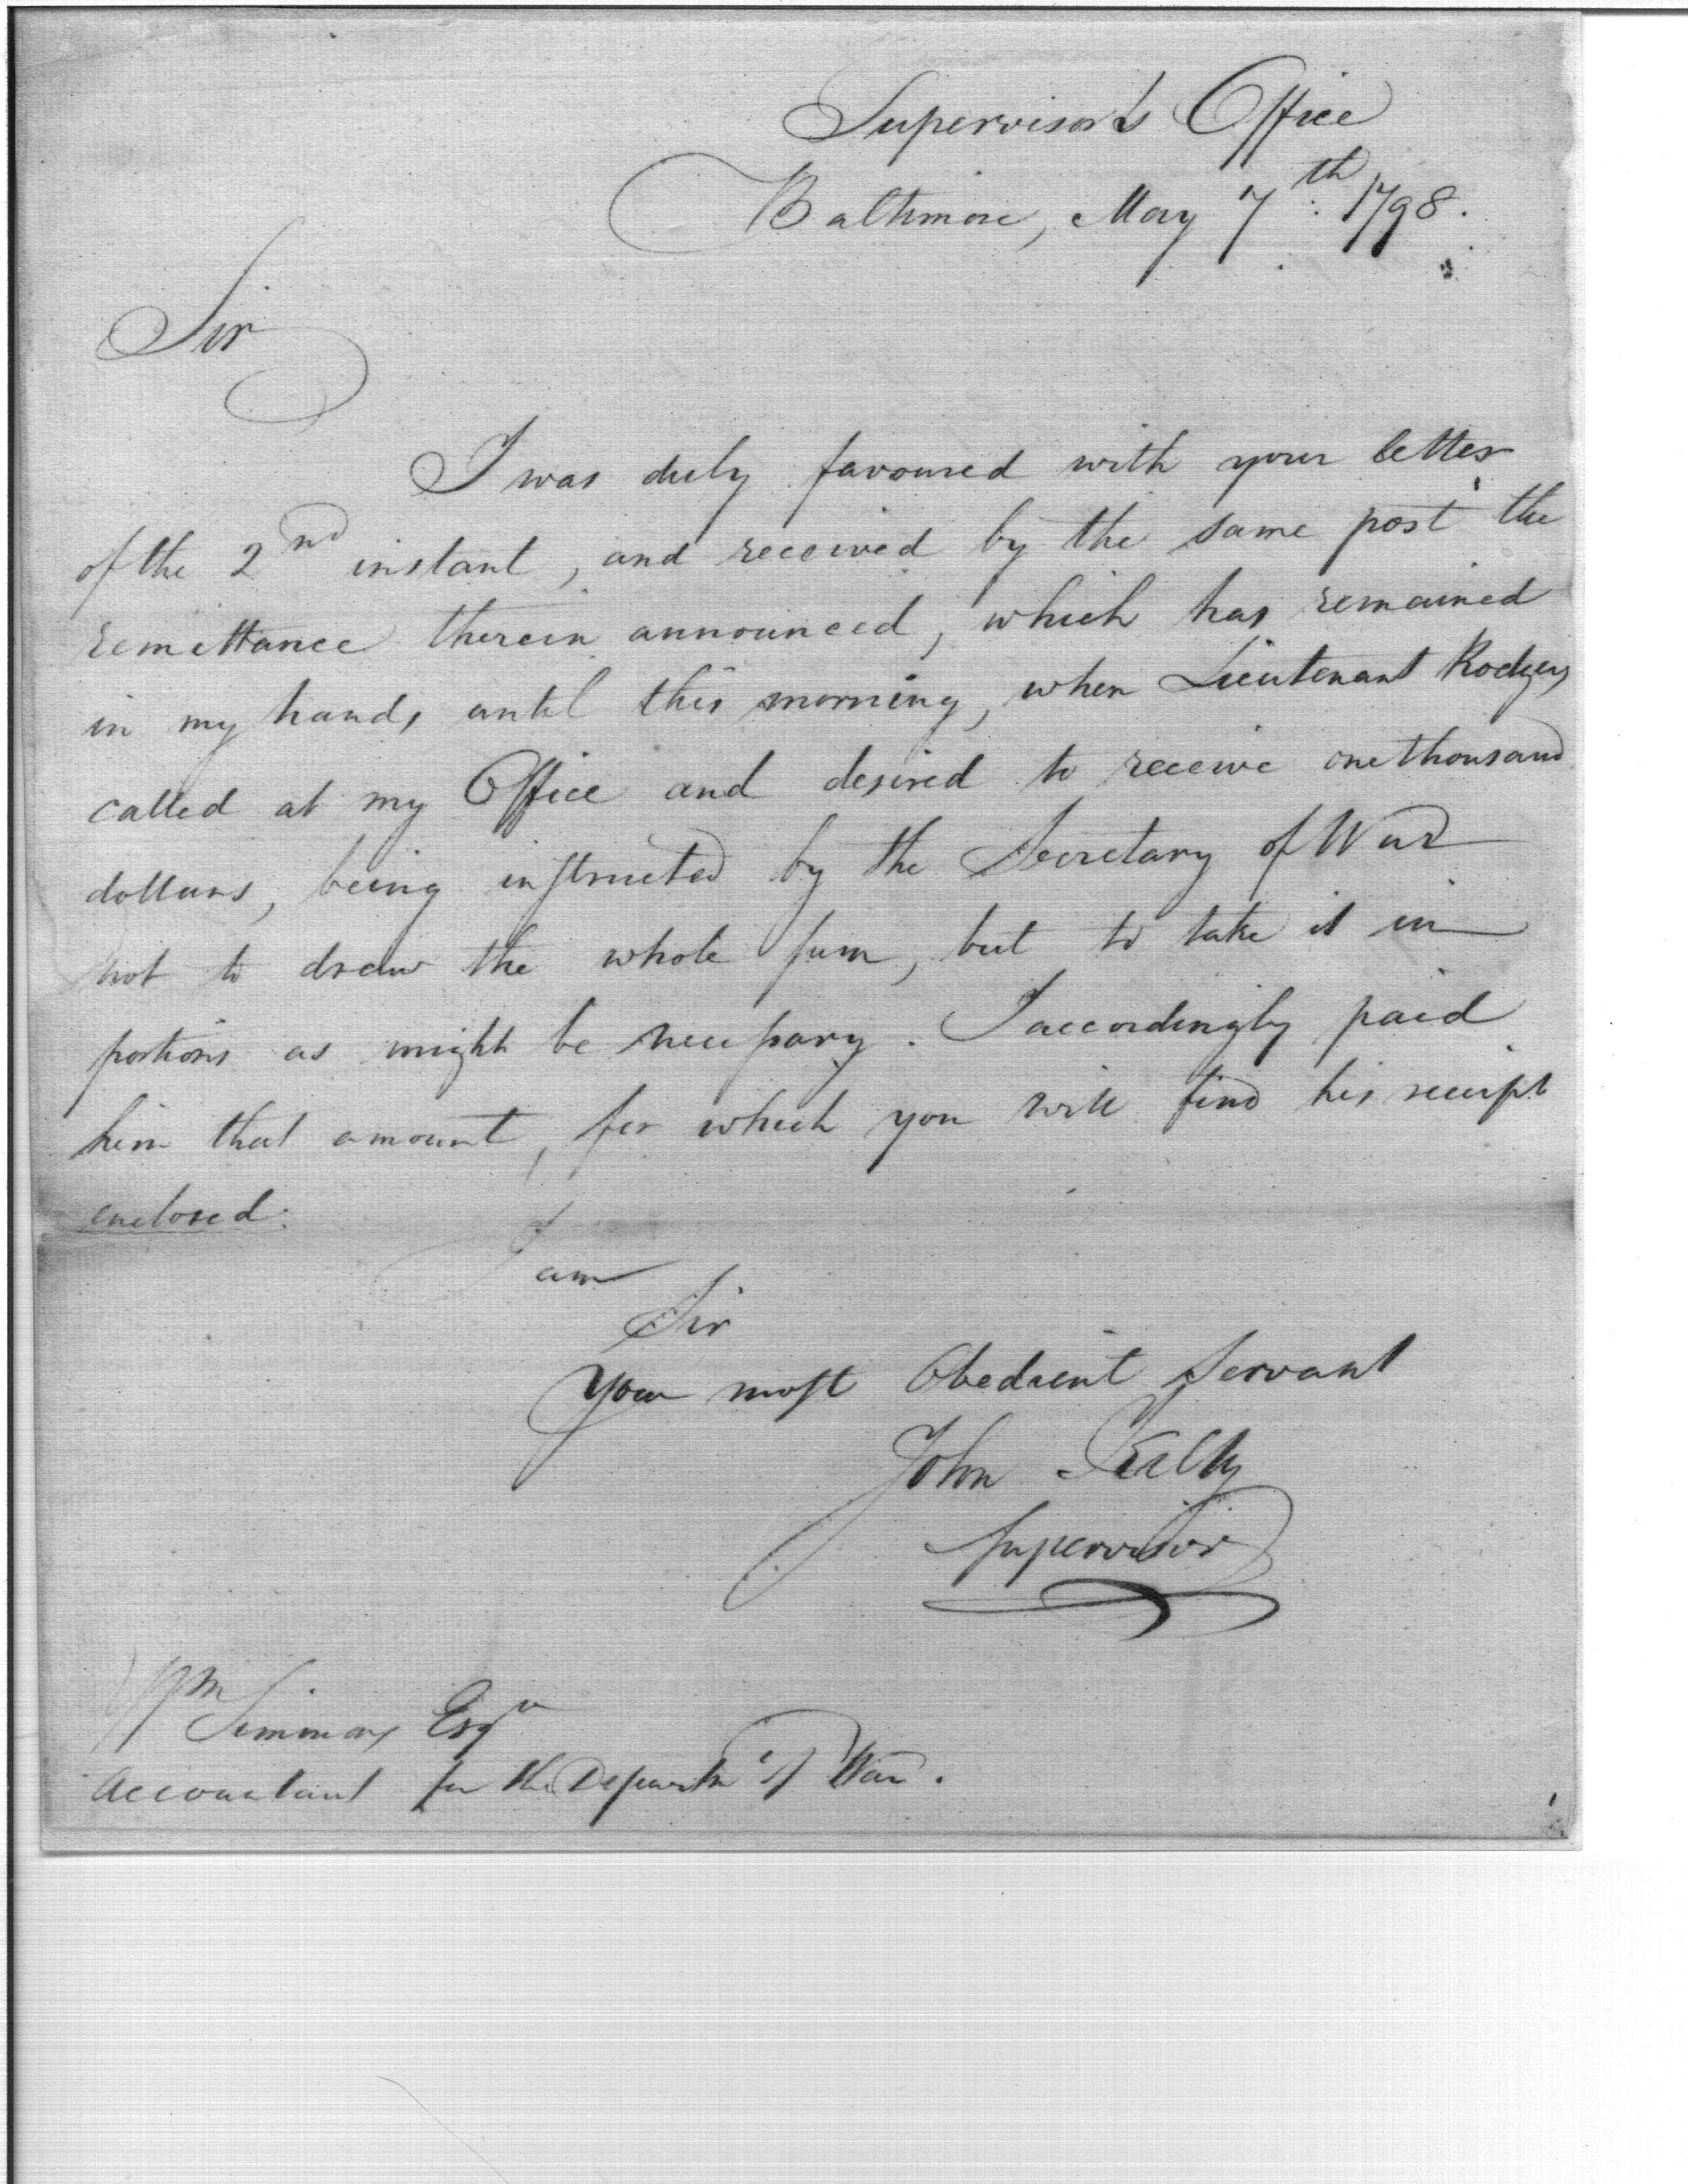 Supervisor's Office
Baltimore, May 7th: 1798.
Sir
I was duly favoured with your letter
of the 2nd instant, and received by the same post the
remittance therein announced, which has remained
in my hands until this morning, when Lieutenant Rodgers
called at my Office and desired to receive one thousand
dollars, being inſtructed by the Secretary of War
not to draw the whole ſum, but to take it in
portions as might be neceſsary. I accordingly paid
him that amount, for which you will find his receipt
enclosed.
I am
Sir
Your moſt Obedient Servant
John Kilty
Supervisor
Wm Simmons Esqr
Accountant for the Departmt of War.